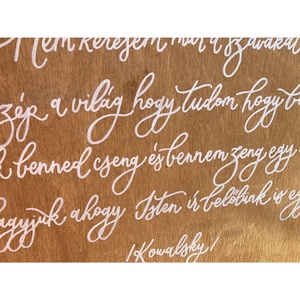 Nem keresem már a szavakat
szép a világ hogy tudom hogy
benned cseng és bennem zeng egy
hagyjuk ahogy Isten ír belőlünk is
/Kowalsky/